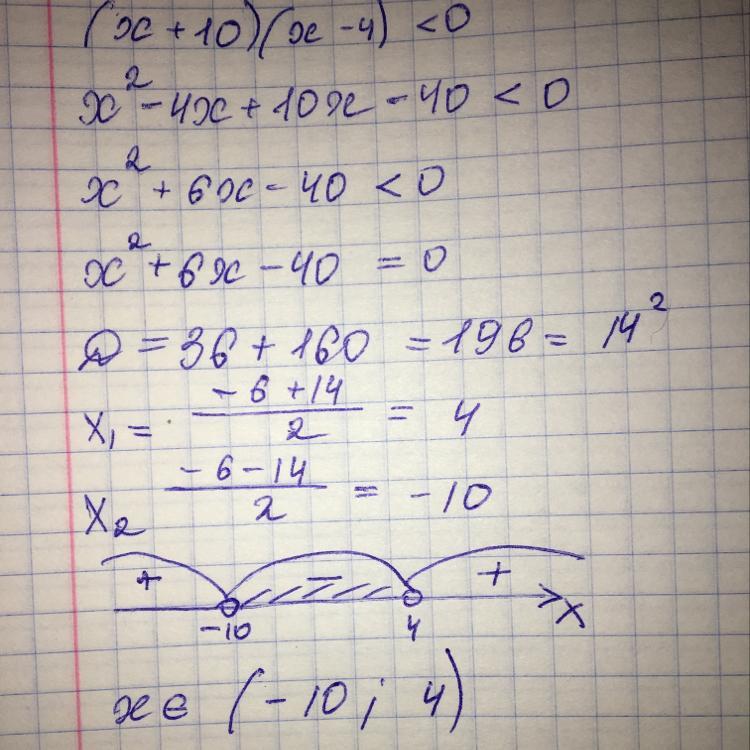 (x + 10)(x - 4) < 0
x² - 4x + 10x - 40 < 0
x² + 6x - 40 < 0
x² + 6x - 40 = 0
D = 36 + 160 = 196 = 14²
x₁ = (-6 + 14)/2 = 4
x₂ (-6 - 14)/2 = -10
+ - +
-10 4 x
x ∈ (-10; 4)